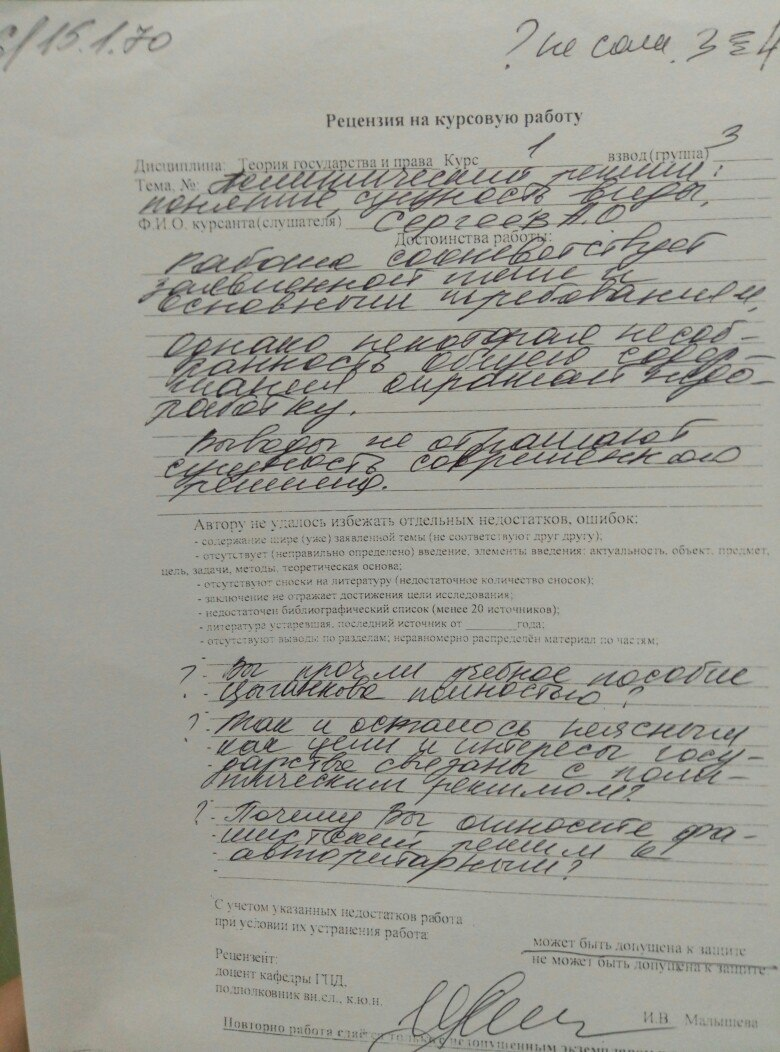 15.1.70
? не согл. 3 4
Рецензия на курсовую работу
Дисциплина: Теория государства и права Курс 1 взвод (группа) 3
Тема, №: Политический режим:
понятие, сущность, виды.
Ф.И.О. курсанта(слушателя) Сергеев А.О
Достоинства работы:
Работа соответствует
заявленной теме и
основным требованиям.
Однако некоторая несоб-
ранность общего содер-
жания отражает недо-
работку.
Выводы не отражают
сущность современного
режима.
Автору не удалось избежать отдельных недостатков, ошибок:
- содержание шире (уже) заявленной темы (не соответствуют друг другу);
- отсутствует (неправильно определено) введение, элементы введения: актуальность, объект, предмет,
цель, задачи, методы, теоретическая основа;
- отсутствуют сноски на литературу (недостаточное количество сносок);
- заключение не отражает достижения цели исследования;
- недостаточен библиографический список (менее 20 источников);
- литература устаревшая, последний источник от ________ года;
- отсутствуют выводы по разделам; неравномерно распределён материал по частям;
-
? - Вы прочли учебное пособие
- Цыганкова полностью?
? - Так и осталось неясным
- как цели и интересы госу-
- дарства связаны с поли-
- тическим режимом?
? - Почему Вы относите фа-
- шистский режим к
- авторитарным?
С учетом указанных недостатков работа
при условии их устранения работа:
может быть допущена к защите
не может быть допущена к защите
Рецензент:
доцент кафедры ГПД,
подполковник вн.сл., к.ю.н.
И.В. Малышева
Повторно работа сдаётся только с недопущенным